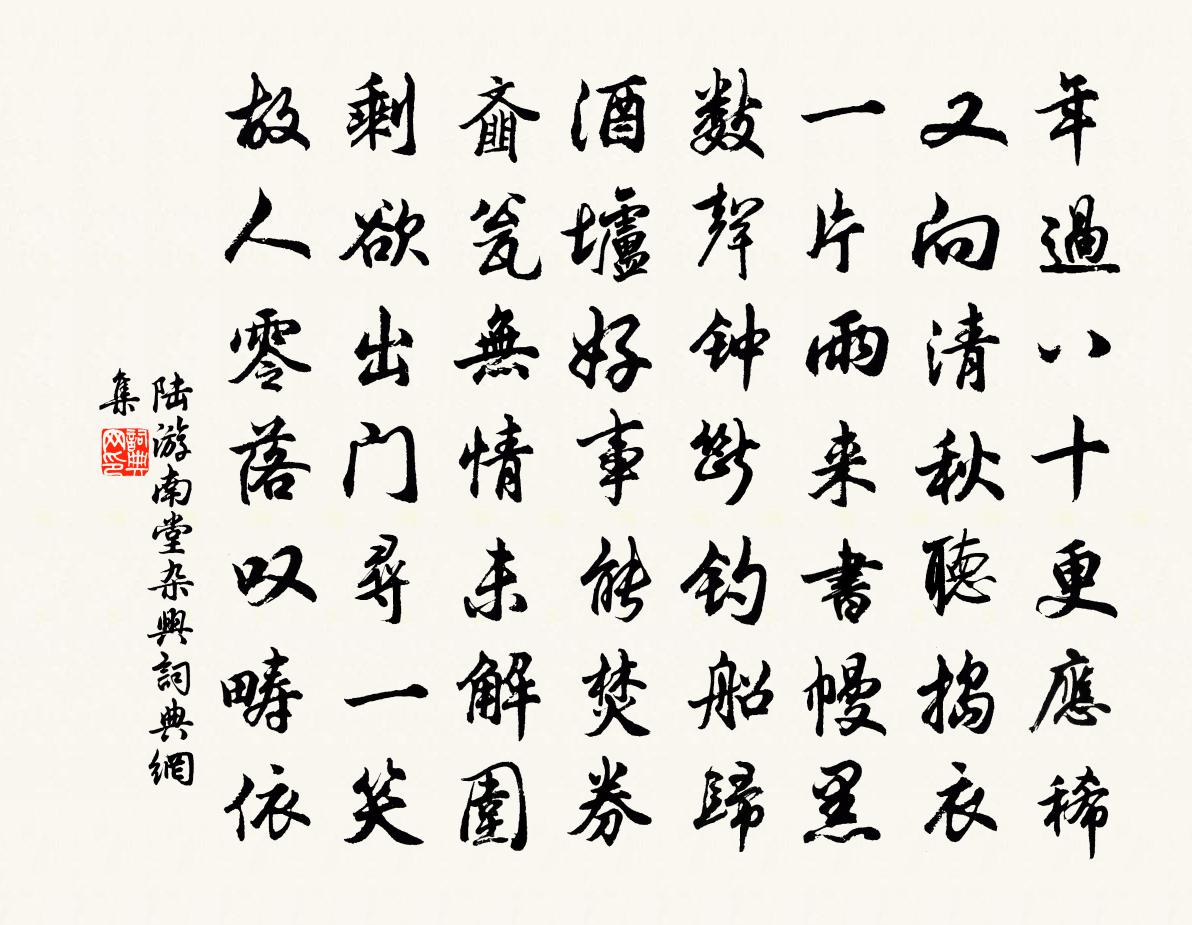 年過八十更應稀
又向清秋聽搗衣
一片雨来書幔黑
數聲钟斷釣船歸
酒壚好事能焚券
齑瓮無情未解圍
剩欲出门尋一笑
故人零落叹疇依
陆游南堂杂興詞典網
集
詞典网印